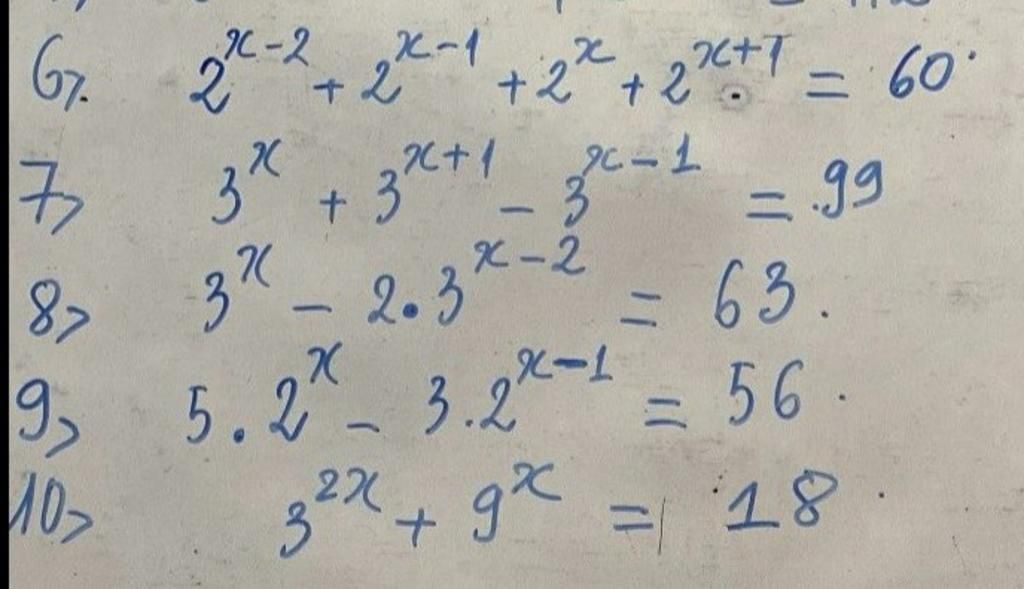 6>. 2^{x-2} + 2^{x-1} + 2^x + 2^{x+1} = 60.
7> 3^x + 3^{x+1} - 3^{x-1} = .99
8> 3^x - 2.3^{x-2} = 63.
9> 5.2^x - 3.2^{x-1} = 56.
10> 3^{2x} + 9^x = 18.